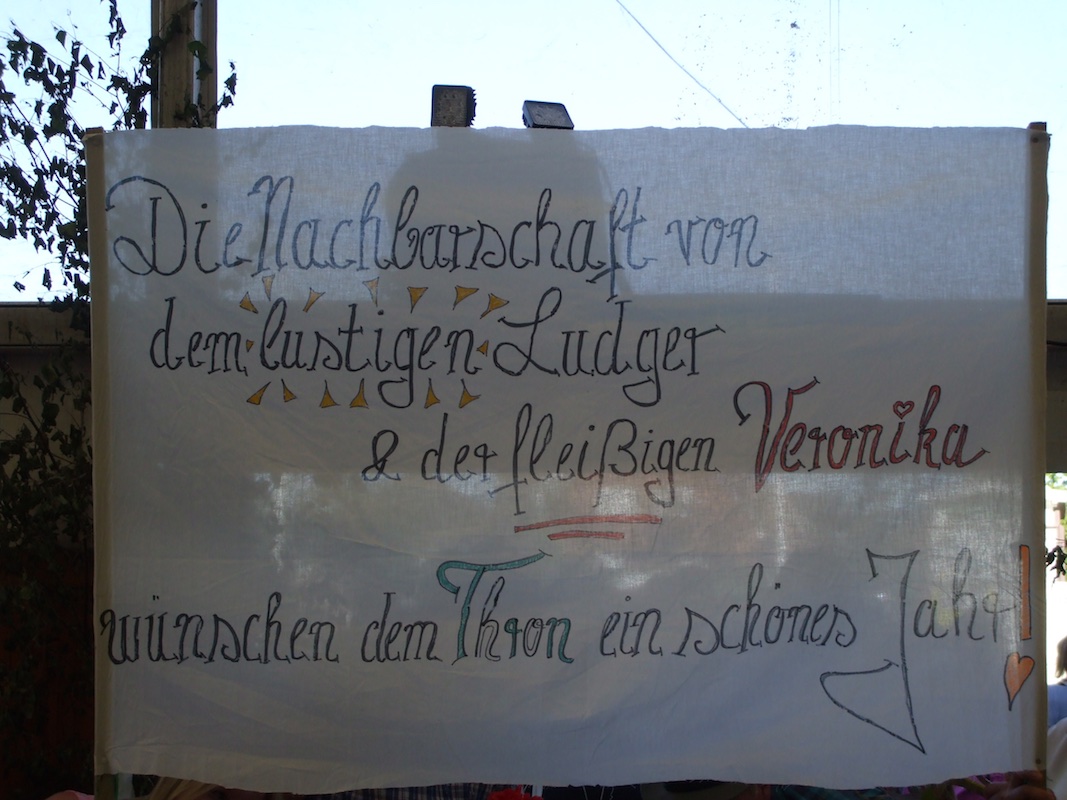 Die Nachbarschaft von
dem lustigen Ludger
& der fleißigen Veronika
wünschen dem Thron ein schönes Jahr!